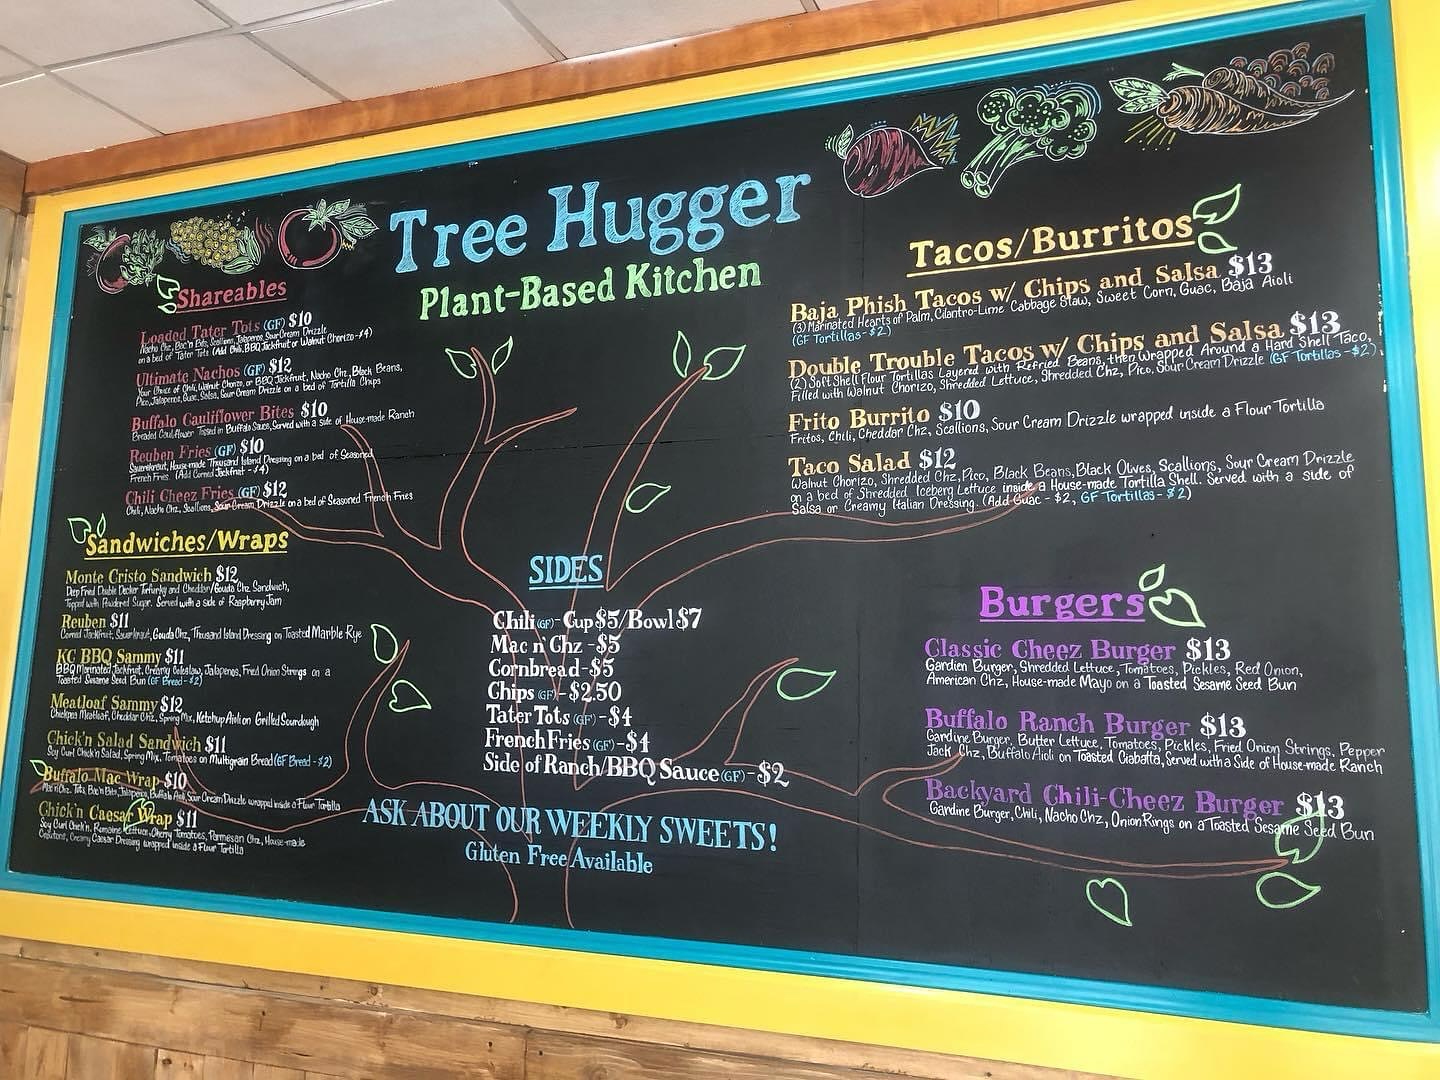 Tree Hugger
Plant-Based Kitchen
Shareables
Loaded Tater Tots (GF) $10
Nacho Chz, Bac'n Bits, Scallions, Jalapenos, Sour Cream Drizzle
on a bed of Tater Tots (Add Chili, BBQ Jackfruit or Walnut Chorizo - $4)
Ultimate Nachos (GF) $12
Your Choice of Chili, Walnut Chorizo, or BBQ Jackfruit, Nacho Chz, Black Beans,
Pico, Jalapenos, Guac, Salsa, Sour Cream Drizzle on a bed of Tortilla Chips
Buffalo Cauliflower Bites $10
Breaded Cauliflower Tossed in Buffalo Sauce, Served with a side of House-made Ranch
Reuben Fries (GF) $10
Sauerkraut, House-made Thousand Island Dressing on a bed of Seasoned
French Fries (Add Corned Jackfruit - $4)
Chili Cheez Fries (GF) $12
Chili, Nacho Chz, Scallions, Sour Cream Drizzle on a bed of Seasoned French Fries
Sandwiches/Wraps
Monte Cristo Sandwich $12
Deep Fried Double Decker Tofurky and Cheddar/Gouda Chz Sandwich,
Topped with Powdered Sugar. Served with a side of Raspberry Jam
Reuben $11
Corned Jackfruit, Sauerkraut, Gouda Chz, Thousand Island Dressing on Toasted Marble Rye
KC BBQ Sammy $11
BBQ Marinated Jackfruit, Creamy Coleslaw, Jalapenos, Fried Onion Strings on a
Toasted Sesame Seed Bun (GF Bread - $2)
Meatloaf Sammy $12
Chickpea Meatloaf, Cheddar Chz, Spring Mix, Ketchup Aioli on Grilled Sourdough
Chick'n Salad Sandwich $11
Soy Curl Chick'n Salad, Spring Mix, Tomatoes on Multigrain Bread (GF Bread - $2)
Buffalo Mac Wrap $10
Mac n Chz, Tots, Bac'n Bits, Jalapenos, Buffalo Aioli, Sour Cream Drizzle wrapped inside a Flour Tortilla
Chick'n Caesar Wrap $11
Soy Curl Chick'n, Romaine Lettuce, Cherry Tomatoes, Parmesan Chz, House-made
Croutons, Creamy Caesar Dressing wrapped inside a Flour Tortilla
SIDES
Chili (GF) - Cup $5/Bowl $7
Mac n Chz - $5
Cornbread - $5
Chips (GF) - $2.50
Tater Tots (GF) - $4
French Fries (GF) - $4
Side of Ranch/BBQ Sauce (GF) - $2
ASK ABOUT OUR WEEKLY SWEETS!
Gluten Free Available
Tacos/Burritos
Baja Phish Tacos w/ Chips and Salsa $13
(3) Marinated Hearts of Palm, Cilantro-Lime Cabbage Slaw, Sweet Corn, Guac, Baja Aioli
(GF Tortillas - $2)
Double Trouble Tacos w/ Chips and Salsa $13
(2) Soft Shell Flour Tortillas Layered with Refried Beans, then Wrapped Around a Hard Shell Taco,
Filled with Walnut Chorizo, Shredded Lettuce, Shredded Chz, Pico, Sour Cream Drizzle (GF Tortillas - $2)
Frito Burrito $10
Fritos, Chili, Cheddar Chz, Scallions, Sour Cream Drizzle wrapped inside a Flour Tortilla
Taco Salad $12
Walnut Chorizo, Shredded Chz, Pico, Black Beans, Black Olives, Scallions, Sour Cream Drizzle
on a bed of Shredded Iceberg Lettuce inside a House-made Tortilla Shell. Served with a side of
Salsa or Creamy Italian Dressing. (Add Guac - $2, GF Tortillas - $2)
Burgers
Classic Cheez Burger $13
Gardien Burger, Shredded Lettuce, Tomatoes, Pickles, Red Onion,
American Chz, House-made Mayo on a Toasted Sesame Seed Bun
Buffalo Ranch Burger $13
Gardine Burger, Butter Lettuce, Tomatoes, Pickles, Fried Onion Strings, Pepper
Jack Chz, Buffalo Aioli on Toasted Ciabatta, Served with a Side of House-made Ranch
Backyard Chili-Cheez Burger $13
Gardine Burger, Chili, Nacho Chz, Onion Rings on a Toasted Sesame Seed Bun